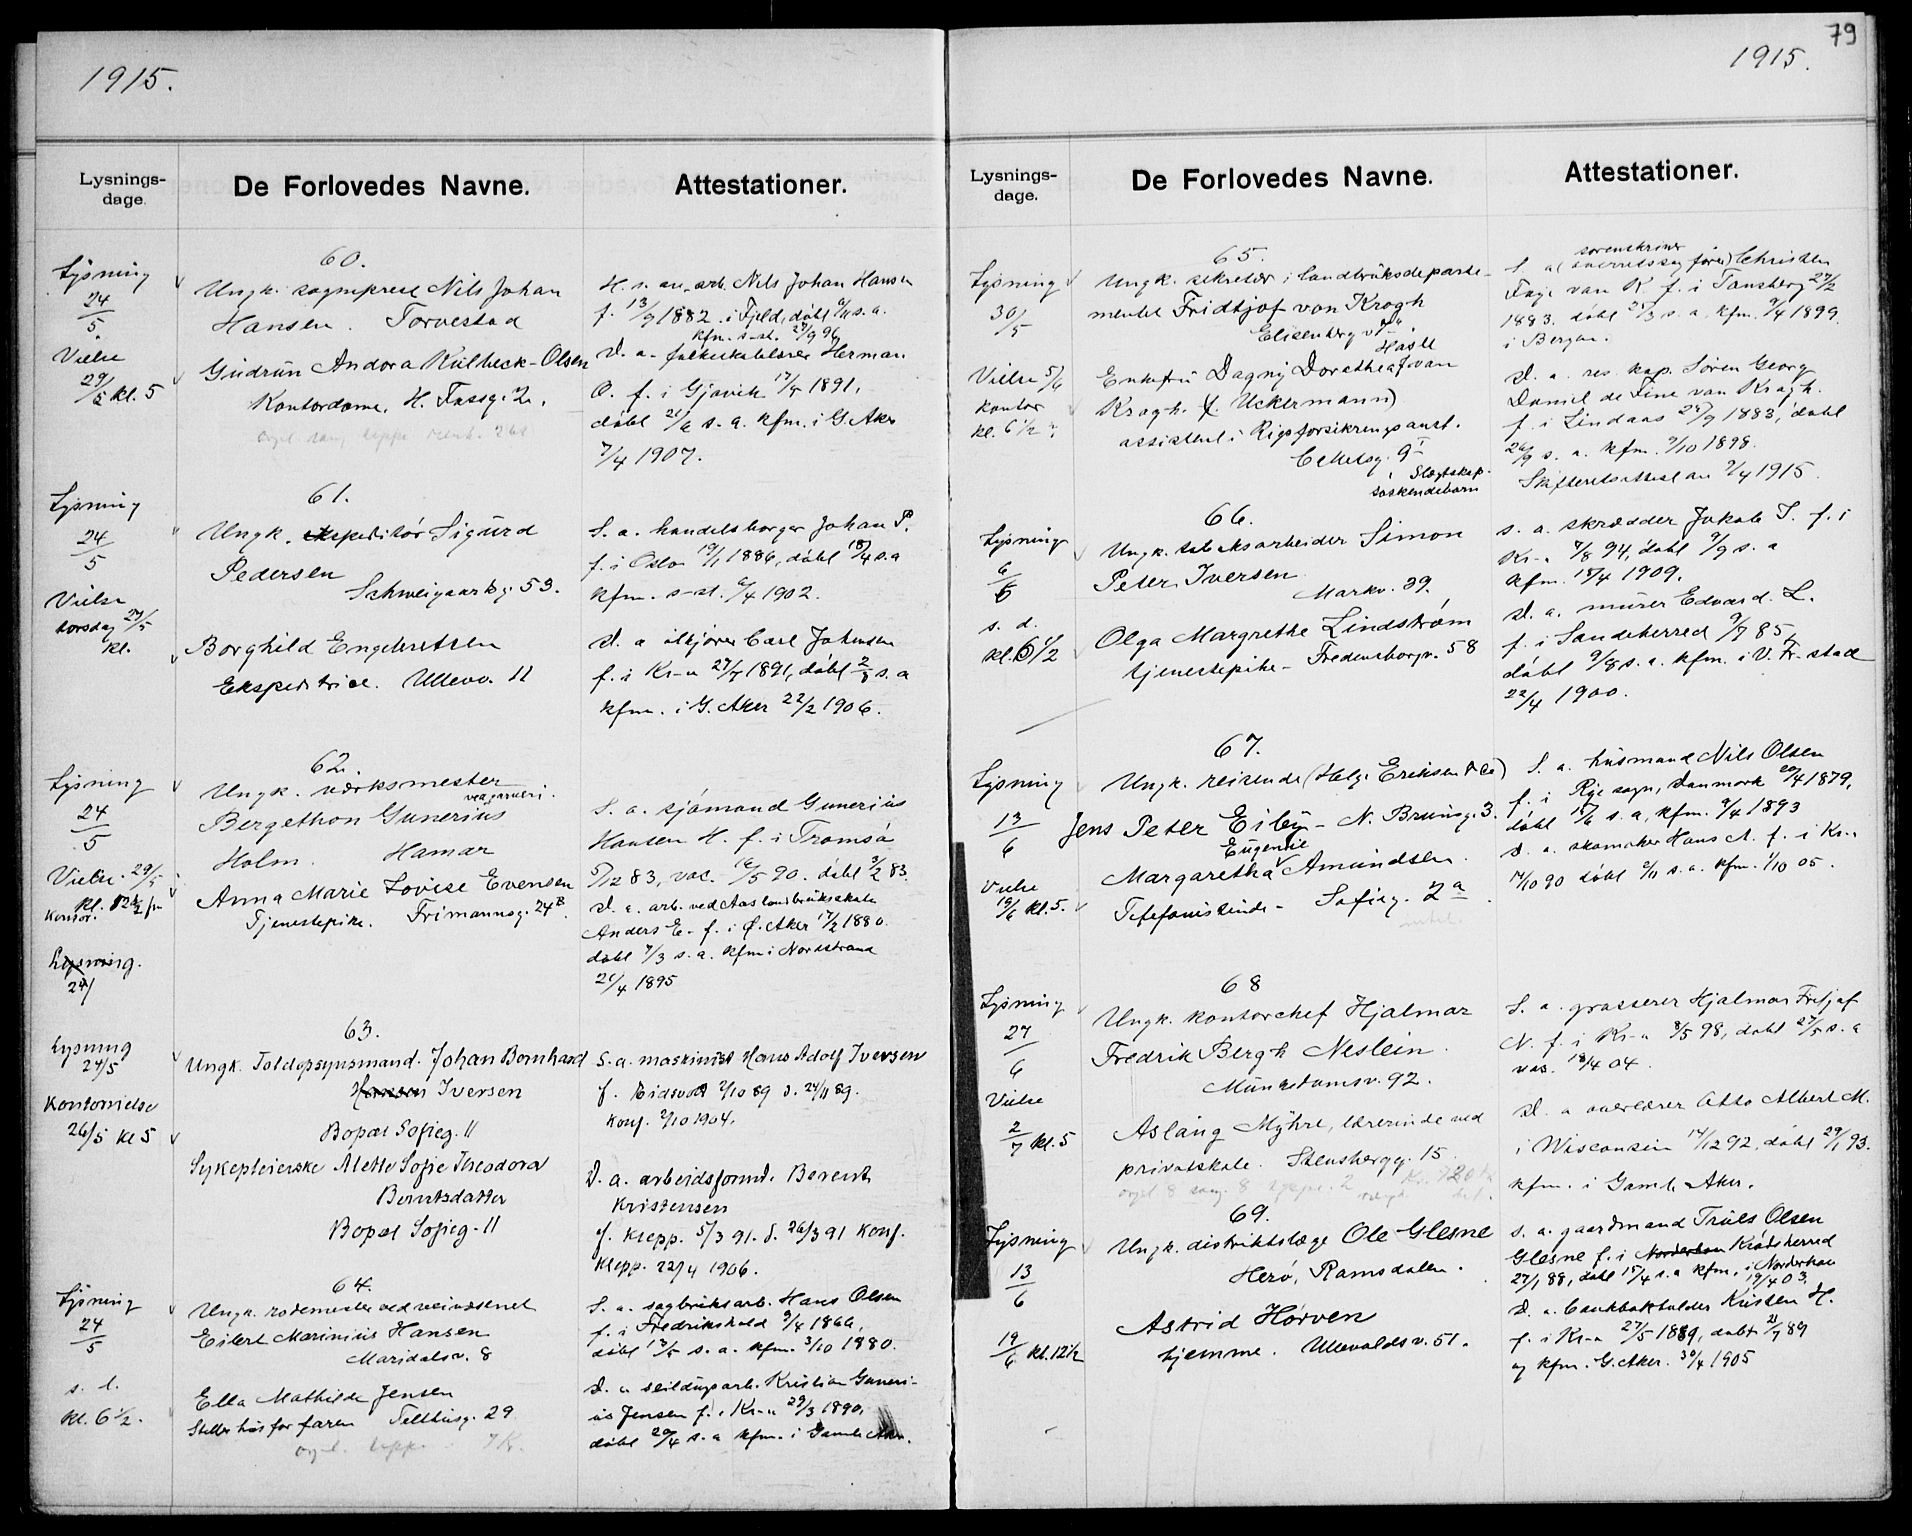 1915.
Lysnings-
dage.
De Forlovedes Navne.
Attestationer.
Lysning
24/5
Vielse
29/5 kl. 5
60.
Ungk. sogneprest Nils Johan
Hansen. Torvestad
Gudrun Andora Kulbeck-Olsen
Kontordame. H. Tassg. 2.
H. s. an. arb. Nils Johan Hansen
f. 13/9 1882. i Fjeld, døbt s. a.
kfm. s-st. 27/9 96
D. a. folkeskolelærer Herman
O. f. i Gjøvik 1891,
døbt 21/6 s. a. kfm. i G. Aker
7/4 1907.
Lysning
24/5
Vielse
torsdag 27/5
kl.
61.
Ungk. ekspeditør Sigurd
Pedersen
Schweigaardsg. 53.
Borghild Engebretsen
Ekspeditrice. Ullevv. 11
S. a. handelsborger Johan P.
f. i Oslo 19/1 1886, døbt 18/4 s. a
kfm. s-st. 6/4 1902.
D. a ølkjører Carl Johansen
f. i Kr-a 27/7 1891, døbt s. a
kfm. i G. Aker 22/2 1906.
Lysning
24/5
Vielse. 29/5
kl. 12½ fm
Kontor.
Lysning.
24/
62.
Ungk. værksmester
ved garveri.
Bergethon Gunerius
Holm. Hamar
Anna Marie Lovise Evensen
Tjenestepike. Frimannsg. 24 B.
S. a. sjömand Gunerius
Hansen H. f. i Tromsø
5/12 83, vac. 16/5 90. døbt 3/2 83.
D. a. arb. ved Aas landbruksskole
Anders E- f. i Ø. Aker 17/2 1880.
døbt 7/3 s. a. kfm i Nordstrand
21/4 1895
Lysning
24/5
Kontorvielse
26/5 kl 5
63.
Ungk. Toldopsynsmand. Johan Bernhard
Hansen Iversen
Bopæl Sofieg. 11
Sykepleierske Alette Sofie Theodora
Berntsdatter
Bopæl Sofieg. 11
S. a. maskinist Hans Adolf Iversen
f. Eidsvold 2/10 89 d. 24/11 89.
Konf. 2/10 1904.
D. a. arbeidsformd. Berent
Kristensen
f. Klepp. 5/3 91. d. 26/3 91 Konf.
Klepp. 22/4 1906.
Lysning
24/5
s. d.
kl. 6½.
64.
Ungk. rodemester ved veivæsenet
Eilert Marinius Hansen
Maridalsv. 8
Ella Mathilde Jensen
Steller hus for faren Telthusg. 29
S. a. sagbruksarb. Hans Olsen
f. i Fredrikshald 9/4 1866,
døbt s. a. kfm. 3/10 1880.
D. a seildugsarb. Kristian Guneri-
us Jensen f. i Kr-a 29/3 1890,
døbt 20/4 s. a kfm. i Gamle Aker.
79
1915.
Lysnings-
dage.
De Forlovedes Navne.
Attestationer.
Lysning
30/5
Vielse 5/6
kontor
kl. 6½
65.
Ungk. sekretær i landbruksdeparte-
mentet Fridtjof von Krogh
Elisenbergv.
Enkefru Dagny Dorothea von
Krogh. (f. Uckermann)
assistent i Rigsforsikringsanst.
Eckersg. 9
Slægtskap.
søskendebarn
sorenskriver
S. a (overretssagfører) Christen
Faye von K f. i Tønsberg 27/2
1883. døbt 25/3 s. a. kfm. 9/4 1899.
i Bergen.
D. a. res. kap. Søren Georg
Daniel de Fine von Krogh.
f. i Lindaas 1883, døbt
26/9 s. a. kfm. 9/10 1898.
Skifteretsattest av 9/4 1915.
Lysning
6/6
s. d.
kl. 6 1/2
66.
Ungk. tobaksarbeider Simon
Peter Iversen
Markv. 39.
Olga Margrethe Lindstrøm
tjenestepike - Fredensborgv. 58
s. a. skrædder Jakob I. f. i
Kr-a 7/8 94, døbt 9/9 s. a
kfm. 18/4 1909.
D. a. murer Edvard. L.
f. i Sandeherred 85,
døbt 9/8 s. a. kfm. i V. Fr-stad
22/4 1900.
Lysning
13/6
Vielse
19/6 kl. 5.
67.
Ungk. reisende (Helge Eriksen & Co)
Jens Peter Eiby - N. Brunsg. 3.
Eugenie
Margaretha Amundsen.
Telefonistinde - Sofieg. 2 a
S. a. husmand Nils Olsen
f. i Rye sogn, Danmark 20/4 1879,
døbt s. a, kfm. 9/4 1893
D. a. skomaker Hans A. f. i Kr-a
14/10 90 døbt s. a. kfm. 1/10 05.
Lysning
27/6
Vielse
2/7 kl. 5
68
Ungk. kontorchef Hjalmar
Fredrik Bergh Neslein.
Munkedamsv. 92.
Aslaug Myhre, lærerinde ved
privatskole. Stensbergg. 15.
S. a. grosserer Hjalmar Fritjof
N. f. i Kr-a 8/5 98, døbt s. a
vac. 18/4 04.
D. a overlærer Otto Albert M.
i Wisconsin 14/12 92, døbt 29/1 93.
kfm. i Gamle Aker.
Lysning
13/6
19/6 kl. 12½
69.
Ungk. distriktslæge Ole Glesne
Herø, Romsdalen.
Astrid Hørven
hjemme. Ullevoldsv. 51.
s. a. gaardmand Truls Olsen
Glesne f. i Norderhov Krødsherred
27/1 88, døbt 15/4 s. a kfm. i Norderhov
19/4 03.
D. a. bankbokholder Kristen H.
f. i Kr-a 27/5 1889, døbt 21/7 89
og kfm. G. Aker. 30/4 1905